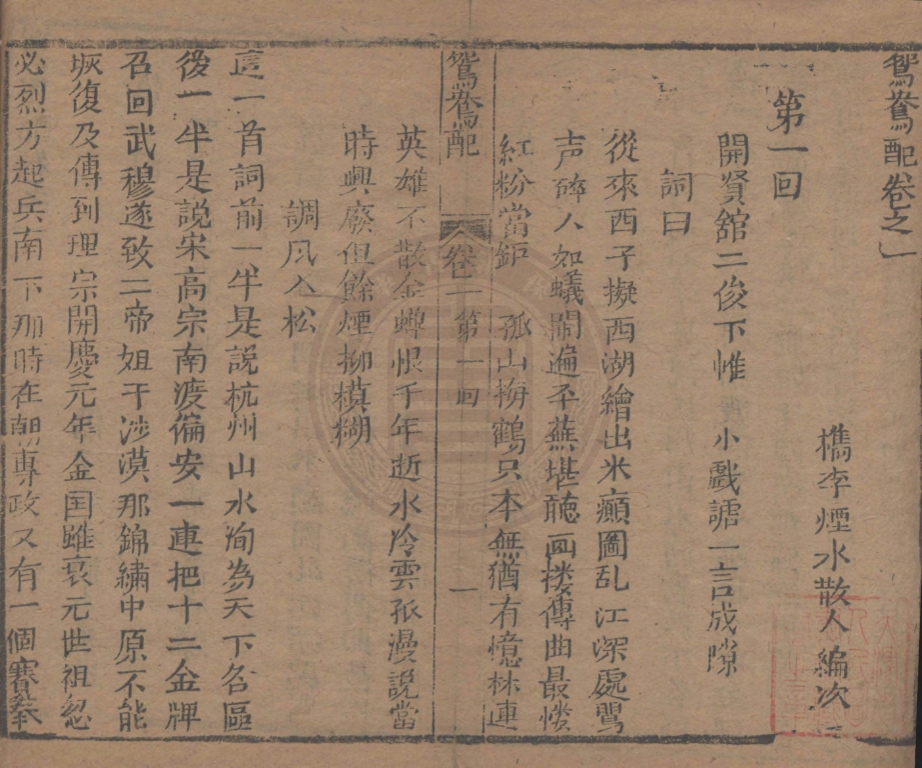 鴛鴦配卷之一
檇李煙水散人編次
第一回
開賢舘二俊下帷　小戲謔一言成隙
詞曰
從來西子擬西湖繪出米癲圖乱江深處鶯
声碎人如蟻鬧遍平蕪堪聽画楼傳曲最憐
紅粉當鉅　孤山梅鶴只本無猶有憶林逋
鴛鴦配　卷一　第一回　一
英雄不散金蟬恨千年逝水冷雲孤漫說當
時興廢但餘煙柳模糊
調風入松
這一首詞前一半是說杭州山水洵為天下名區
後一半是說宋高宗南渡偏安一連把十二金牌
召回武穆遂致二帝姐干沙漠那錦繡中原不能
恢復及傳到理宗開慶元年金国雖衰元世祖忽
必烈方起兵南下那時在朝專政又有一個賽秦